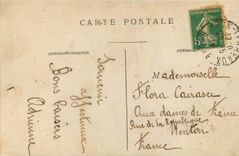 CARTE POSTALE
CORRESPONDANCE
Souvenir
affectueux
Bons baisers
Adrienne
Mademoiselle
Flora Cairasco
Aux dames de France
Rue de la République
Menton
France